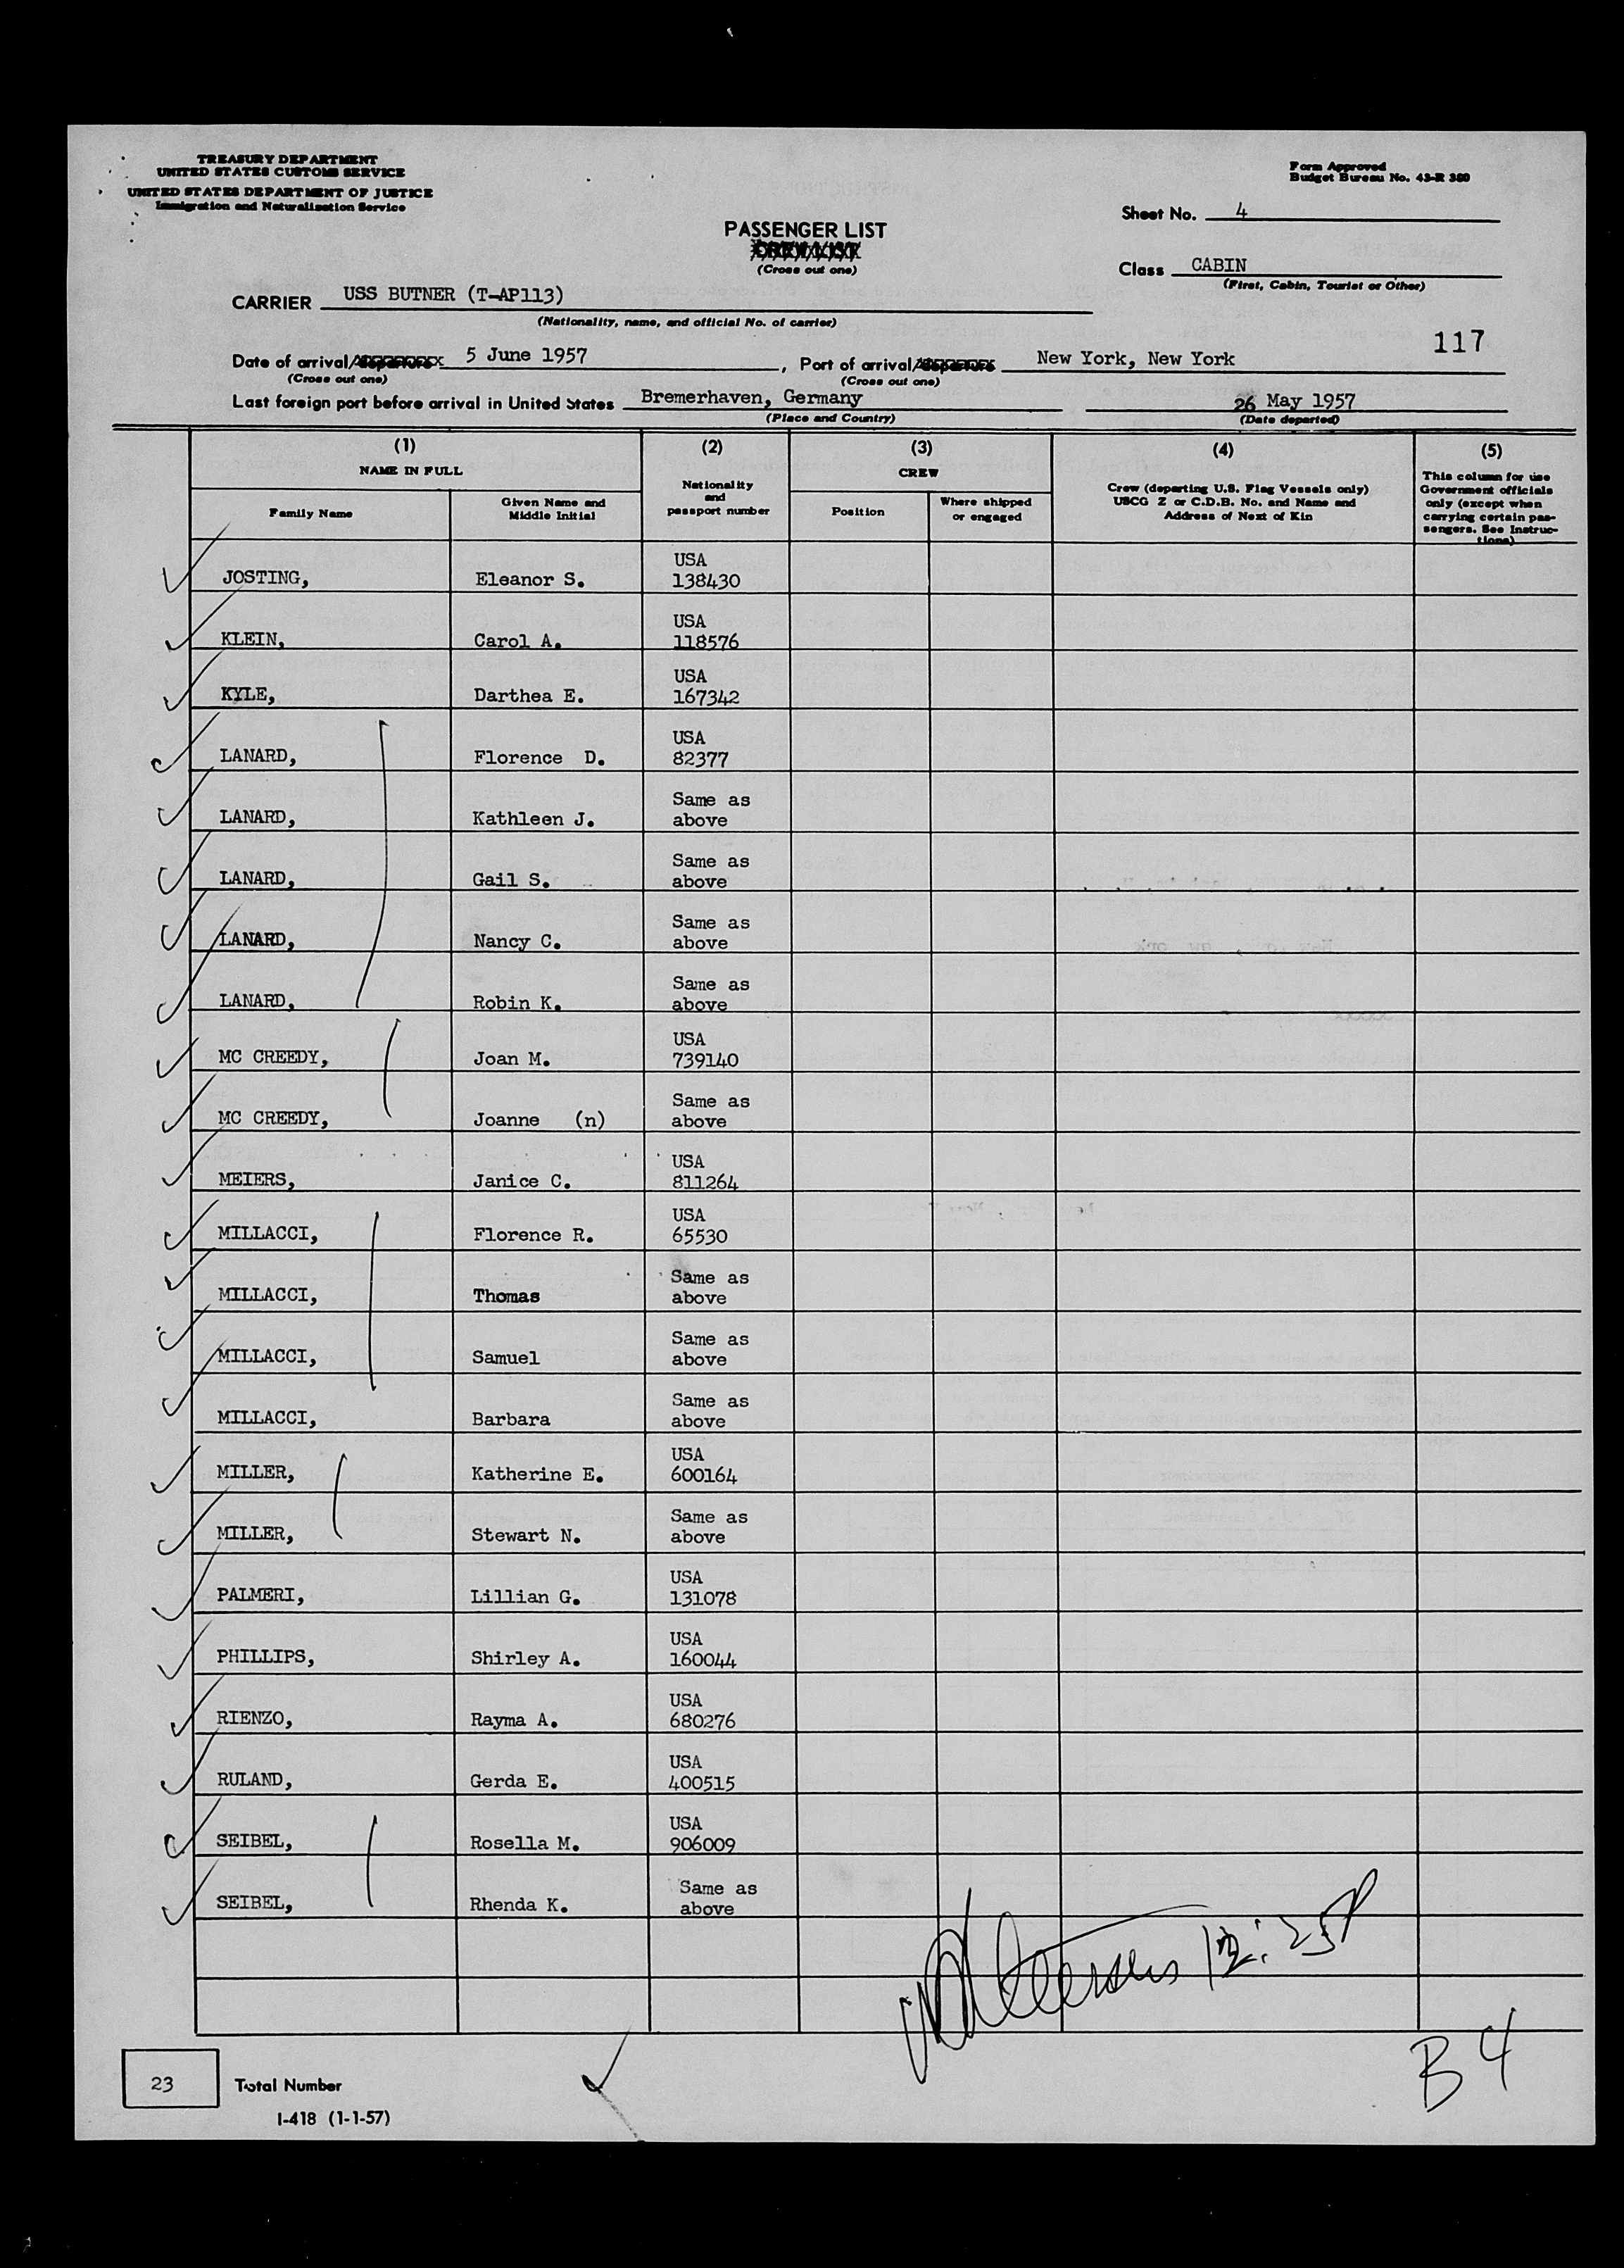 TREASURY DEPARTMENT
UNITED STATES CUSTOMS SERVICE
UNITED STATES DEPARTMENT OF JUSTICE
Immigration and Naturalization Service
Form Approved
Budget Bureau No. 43-R 380
Sheet No. 4
PASSENGER LIST
CREW LIST
(Cross out one)
Class CABIN
(First, Cabin, Tourist or Other)
CARRIER USS BUTNER (T-AP113)
(Nationality, name, and official No. of carrier)
117
Date of arrival/departure 5 June 1957, Port of arrival/departure New York, New York
(Cross out one) (Cross out one)
Last foreign port before arrival in United States Bremerhaven, Germany 26 May 1957
(Place and Country) (Date departed)
(1) (2) (3) (4) (5)
NAME IN FULL
Family Name
Given Name and Middle Initial
Nationality and passport number
CREW
Position
Where shipped or engaged
Crew (departing U.S. Flag Vessels only)
USCG Z or C.D.B. No. and Name and
Address of Next of Kin
This column for use
Government officials
only (except when
carrying certain pas-
sengers. See Instruc-
tions)
JOSTING, Eleanor S. USA 138430
KLEIN, Carol A. USA 118576
KYLE, Darthea E. USA 167342
LANARD, Florence D. USA 82377
LANARD, Kathleen J. Same as above
LANARD, Gail S. Same as above
LANARD, Nancy C. Same as above
LANARD, Robin K. Same as above
MC CREEDY, Joan M. USA 739140
MC CREEDY, Joanne (n) Same as above
MEIERS, Janice C. USA 811264
MILLACCI, Florence R. USA 65530
MILLACCI, Thomas Same as above
MILLACCI, Samuel Same as above
MILLACCI, Barbara Same as above
MILLER, Katherine E. USA 600164
MILLER, Stewart N. Same as above
PALMERI, Lillian G. USA 131078
PHILLIPS, Shirley A. USA 160044
RIENZO, Rayma A. USA 680276
RULAND, Gerda E. USA 400515
SEIBEL, Rosella M. USA 906009
SEIBEL, Rhenda K. Same as above
B 4
23 Total Number
I-418 (1-1-57)